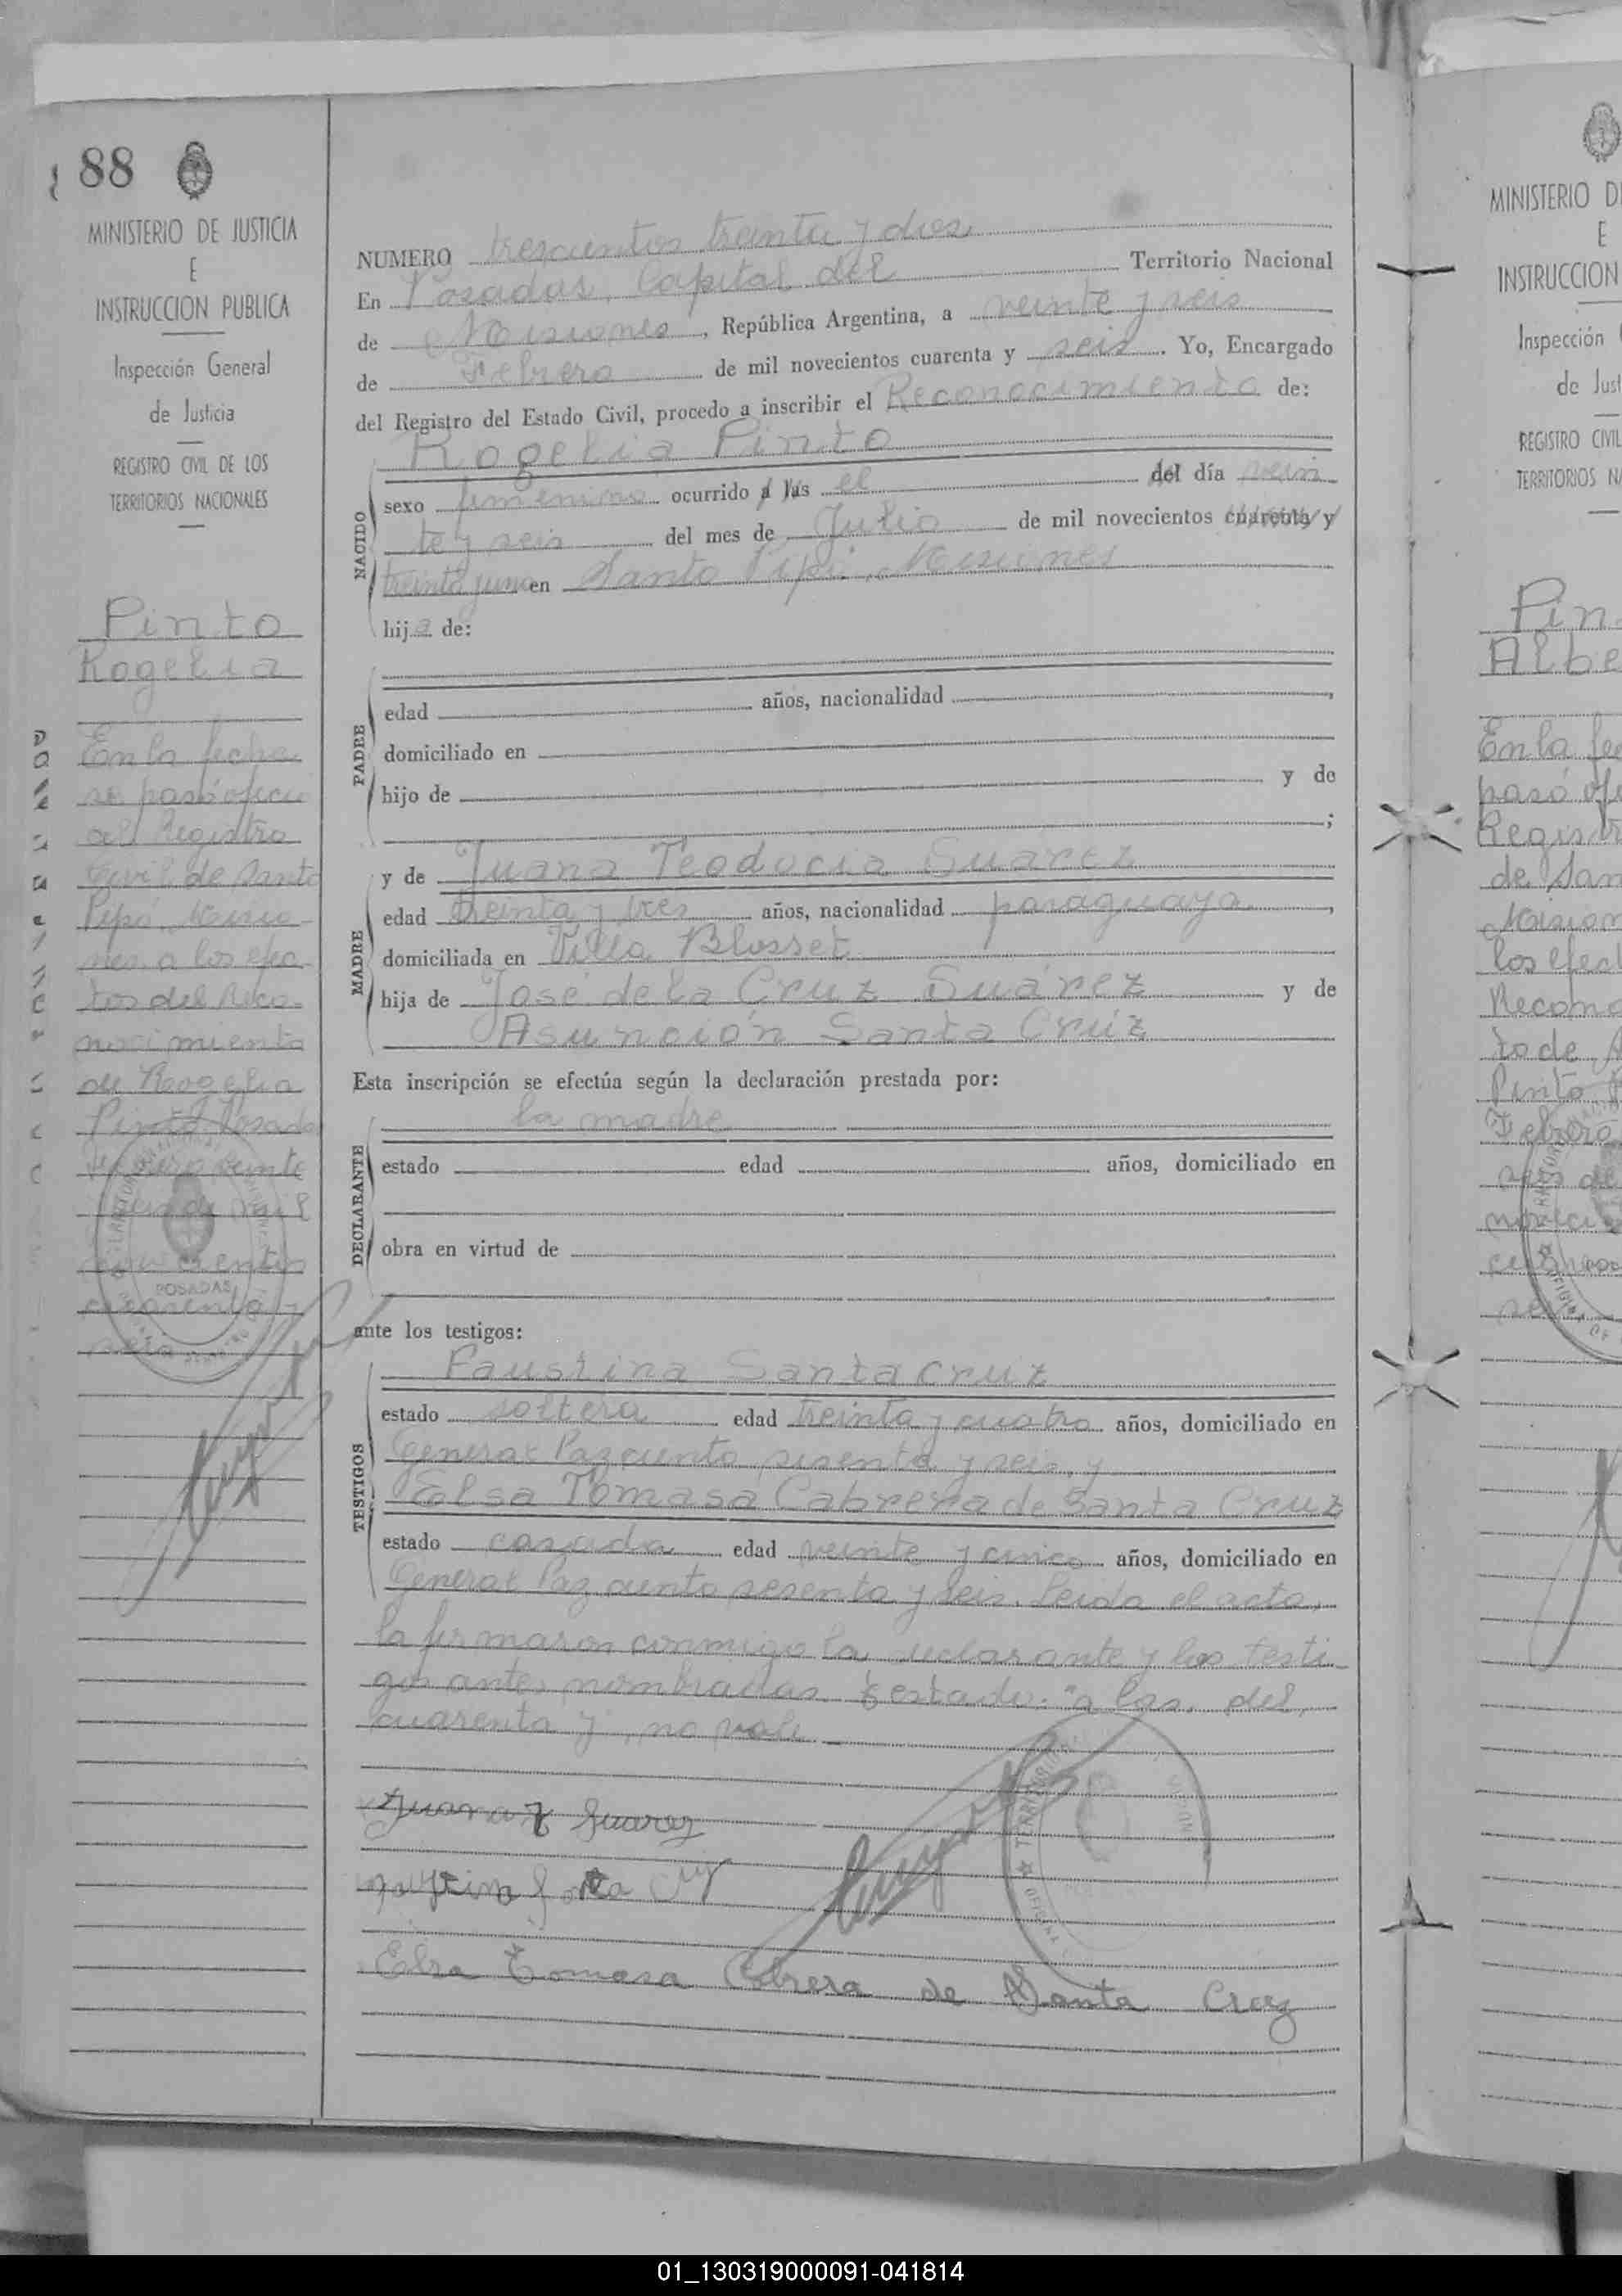 88
MINISTERIO DE JUSTICIA
E
INSTRUCCION PUBLICA
Inspección General
de Justicia
REGISTRO CIVIL DE LOS
TERRITORIOS NACIONALES
Pinto
Rogelia
En la fecha
se pasó oficio
al Registro
Civil de Santo
Pipó, Misio-
nes a los efec-
tos del Reco-
nocimiento
de Rogelia
Pinto. Posadas
Febrero veinte
y seis de mil
novecientos
cuarenta y
seis
POSADAS
NUMERO trescientos treinta y dos
En Posadas, Capital del Territorio Nacional
de Misiones, República Argentina, a veinte y seis
de Febrero de mil novecientos cuarenta y seis. Yo, Encargado
del Registro del Estado Civil, procedo a inscribir el Reconocimiento de:
Rogelia Pinto
NACIDO
sexo femenino ocurrido a las el del día vein
te y seis del mes de Julio de mil novecientos cuarenta y
treinta y uno en Santo Pipó, Misiones
hija de:
PADRE
edad años, nacionalidad ,
domiciliado en
hijo de y de
;
MADRE
y de Juana Teodocia Suarez
edad treinta y tres años, nacionalidad paraguaya ,
domiciliada en Villa Blosset
hija de José de la Cruz Suárez y de
Asunción Santa Cruz
Esta inscripción se efectúa según la declaración prestada por:
DECLARANTE
la madre
estado edad años, domiciliado en
obra en virtud de
ante los testigos:
TESTIGOS
Faustina Santa Cruz
estado soltera edad treinta y cuatro años, domiciliado en
General Paz ciento sesenta y seis, y
Elsa Tomasa Cabrera de Santa Cruz
estado casada edad veinte y cinco años, domiciliado en
General Paz ciento sesenta y seis. Leida el acta,
la firmaron conmigo la declarante y los testi-
gos antes nombradas. Testado: "a las, del,
cuarenta y", no vale.
Juana T Suarez
Santa Cruz
Elsa Tomasa Cabrera de Santa Cruz
MINISTERIO D
E
INSTRUCCION
Inspección
de Just
REGISTRO CIVIL
TERRITORIOS NA
Pin
Albe
En la fe
pasó ofi
Registr
de San
Mision
los efect
Recono
to de A
Pinto
Febrero
01_130319000091-041814